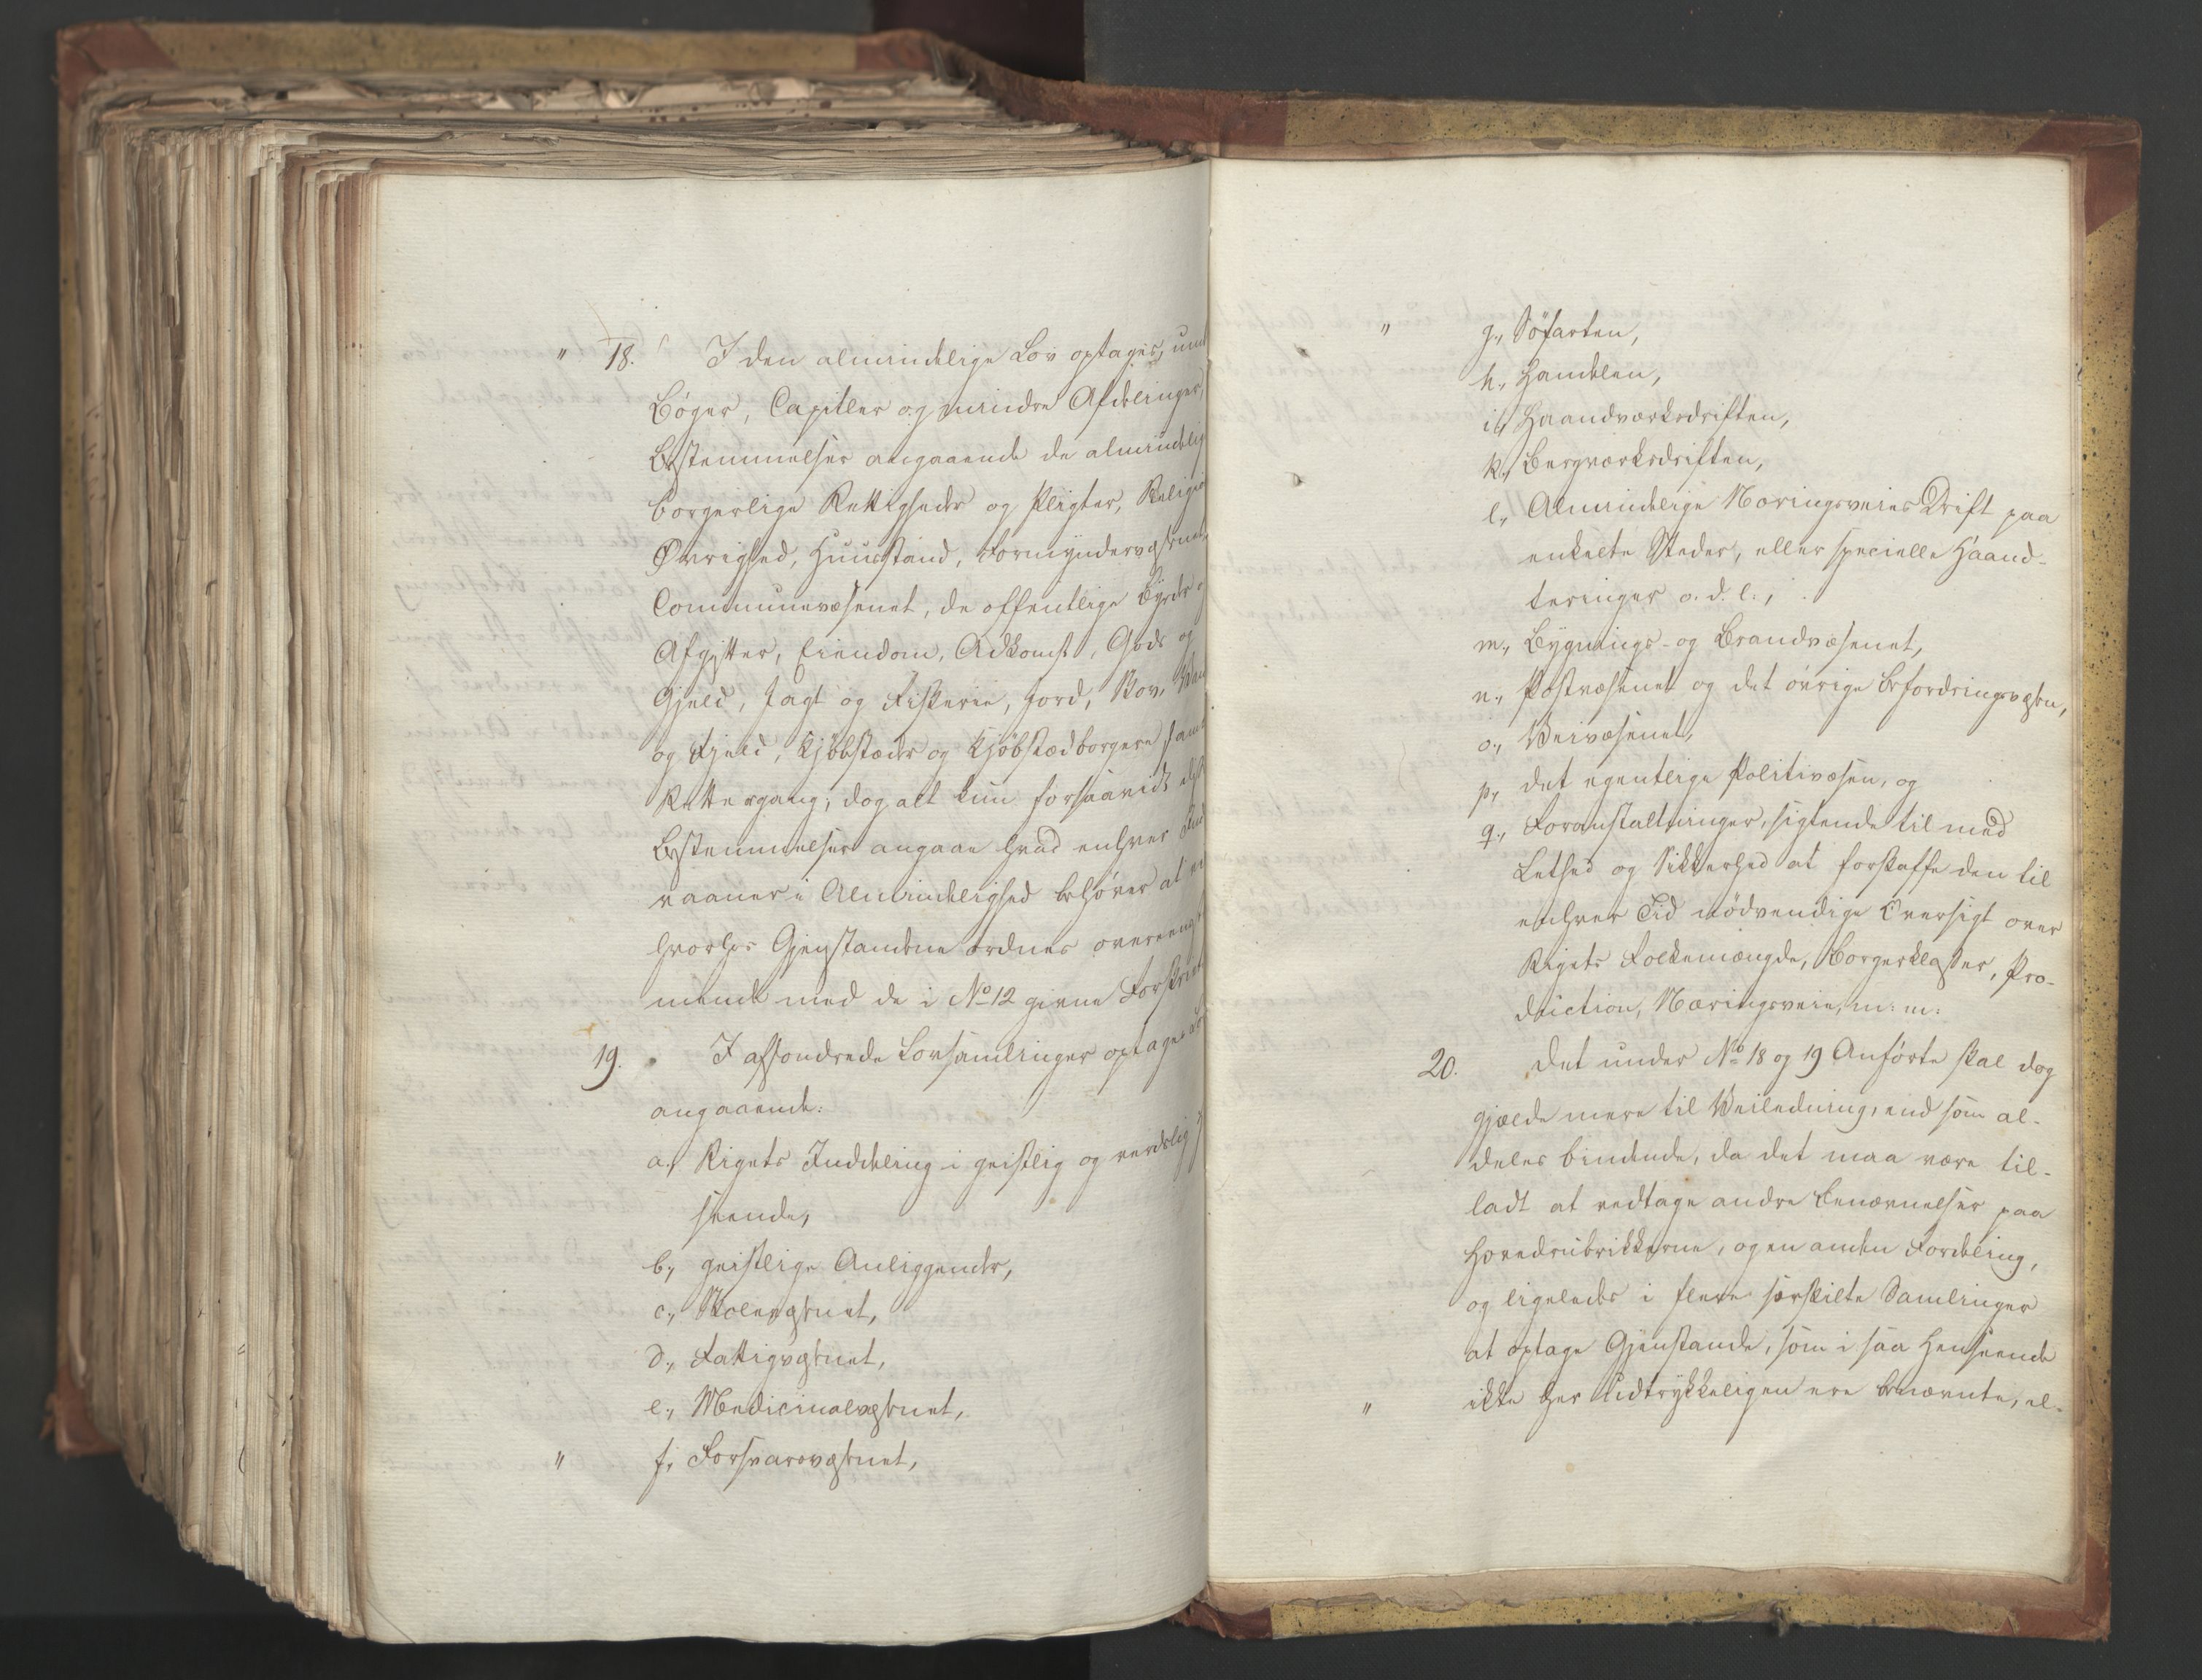 " 18. I den almindelige Lov optages, und
Bøger, Capitler og mindre Afdelinger,
Bestemmelser angaaende de almindelig
borgerlige Rettigheder og Pligter, Religio
Øvrighed, Huusstand, Formyndervæsenet,
Communevæsenet, de offentlige Byrder o
Afgifter, Eiendom, Adkomst, Gods og
Gjeld, Jagt og Fiskerie, Jord, Skov, Van
og Fjeld, Kjøbstæder og Kjøbstædborgere samt
Rettergang; dog alt kun forsaavidt
Bestemmelser angaae hvad enhver
vaaner i Almindelighed behøver at
hvorhos Gjenstandene ordnes overeens
mende med de i No 12 givne Forskrift
19. I afsondrede Lovsamlinger optages
angaaende:
a., Rigets Inddeling i geistlig og verdslig
seende,
b., geistlige Anliggender,
c., Skolevæsenet,
d., Fattigvæsenet,
e., Medicinalvæsenet,
" f., Forsvarsvæsenet,
" g., Söfarten,
h., Handelen,
i., Haandværksdriften,
k., Bergværksdriften,
l., Almindelige Næringsveies Drift paa
enkelte Steder, eller specielle Haand-
teringer o. d. l.,
m., Bygnings- og Brandvæsenet,
n., Postvæsenet og det øvrige Befordringsvæsen,
o., Veivæsenet,
p., det egentlige Politivæsen, og
q., Foranstaltninger, sigtende til med
Lethed og Sikkerhed at forskaffe den til
enhver Tid nödvendige Oversigt over
Rigets Folkemængde, Borgerklasser, Pro-
duction, Næringsveie, m: m:
20. Det under No 18 og 19 Anførte skal dog
gjælde mere til Veiledning, end som al-
deles bindende, da det maa være til-
ladt at vedtage andre Benævnelser paa
Hovedrubrikkerne, og en anden Fordeling,
og ligeledes i flere særskilte Samlinger
at optage Gjenstande, som i saa Henseende
" ikke her udtrykkeligen ere benævnte, el-